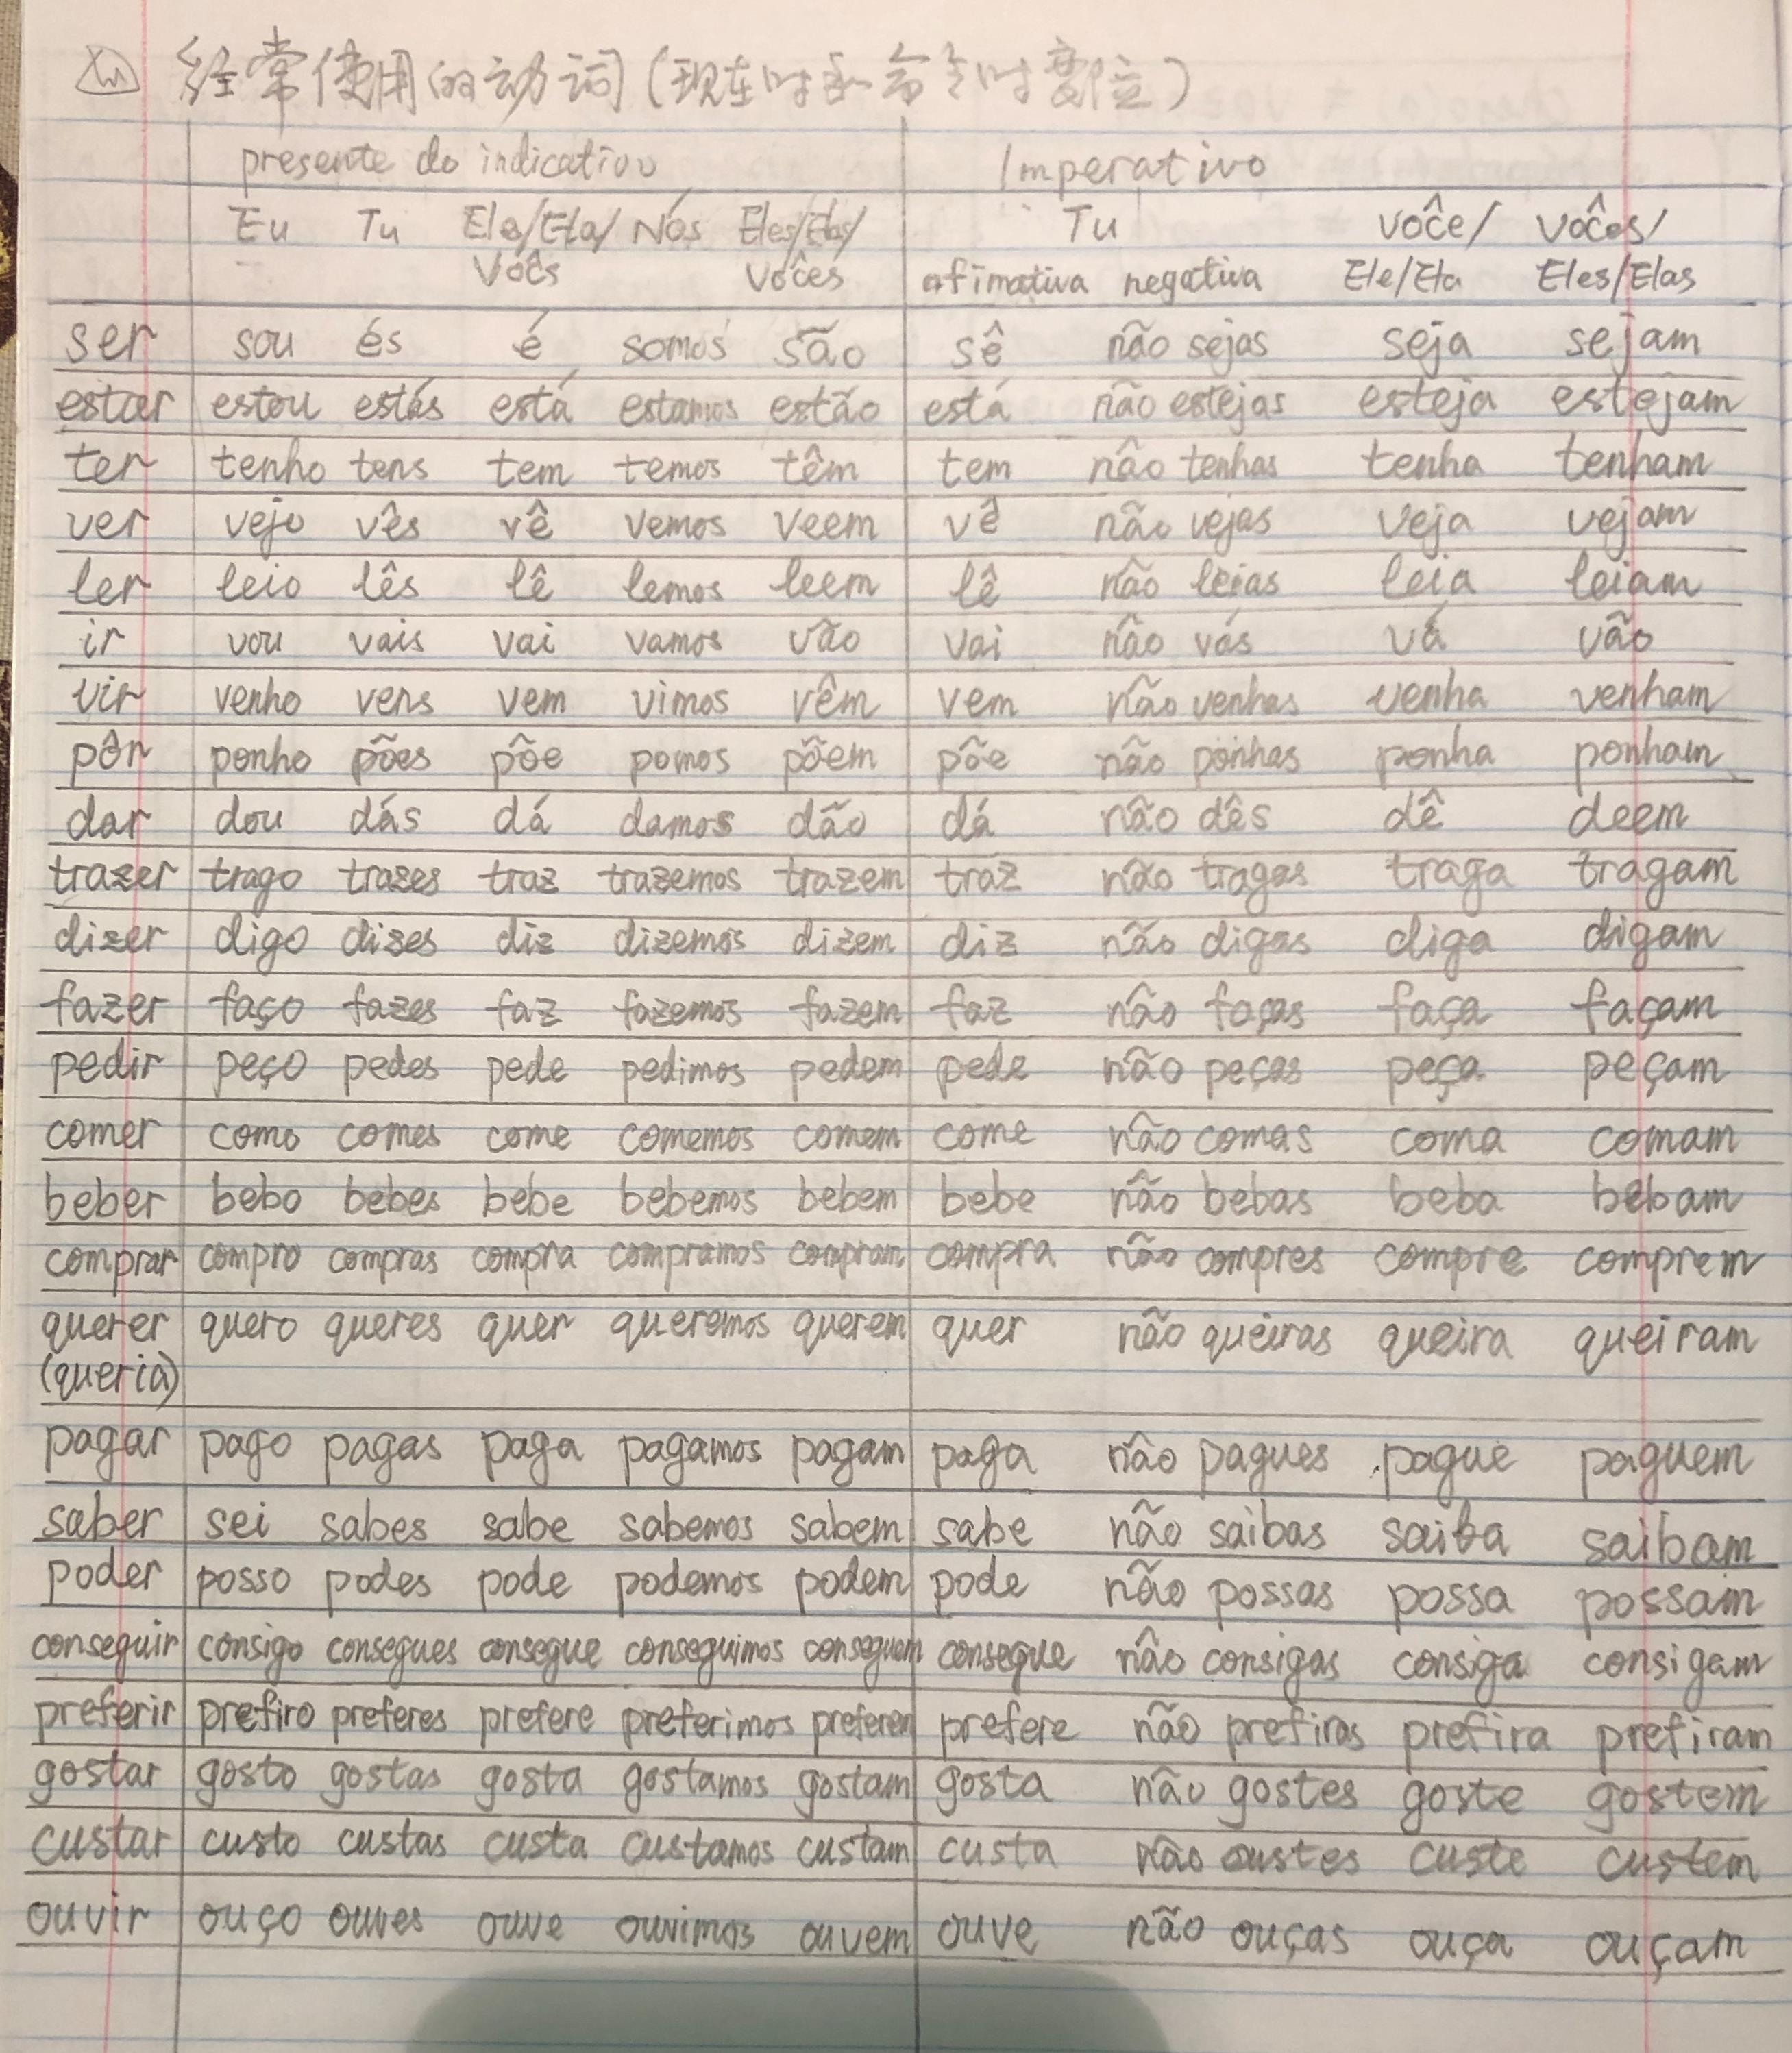 经常使用的动词(现在时和命令时变位)
presente do indicativo Imperativo
Eu Tu Ele/Ela/ Nós Eles/Elas/ Tu voĉe/ voĉes/
Voĉs Voĉes afimativa negativa Ele/Ela Eles/Elas
ser sou és é somos são sê não sejas seja sejam
estar estou estás está estamos estão está não estejas esteja estejam
ter tenho tens tem temos têm tem não tenhas tenha tenham
ver vejo vês vê vemos veem vê não vejas veja vejam
ler leio lês lê lemos leem lê não leias leia leiam
ir vou vais vai vamos vão vai não vás vá vão
vir venho vens vem vimos vêm vem não venhas venha venham
pôr ponho pões põe pomos põem põe não ponhas ponha ponham
dar dou dás dá damos dão dá não dês dê deem
trazer trago trazes traz trazemos trazem traz não tragas traga tragam
dizer digo dizes diz dizemos dizem diz não digas diga digam
fazer faço fazes faz fazemos fazem faz não faças faça façam
pedir peço pedes pede pedimos pedem pede não peças peça peçam
comer como comes come comemos comem come não comas coma comam
beber bebo bebes bebe bebemos bebem bebe não bebas beba bebam
comprar compro compras compra compramos compram compra não compres compre comprem
querer quero queres quer queremos querem quer não queiras queira queiram
(queria)
pagar pago pagas paga pagamos pagam paga não pagues pague paguem
saber sei sabes sabe sabemos sabem sabe não saibas saiba saibam
poder posso podes pode podemos podem pode não possas possa possam
conseguir consigo consegues consegue conseguimos conseguem consegue não consigas consiga consigam
preferir prefiro preferes prefere preferimos preferem prefere não prefiras prefira prefiram
gostar gosto gostas gosta gostamos gostam gosta não gostes goste gostem
custar custo custas custa custamos custam custa não custes custe custem
ouvir ouço ouves ouve ouvimos ouvem ouve não ouças ouça ouçam